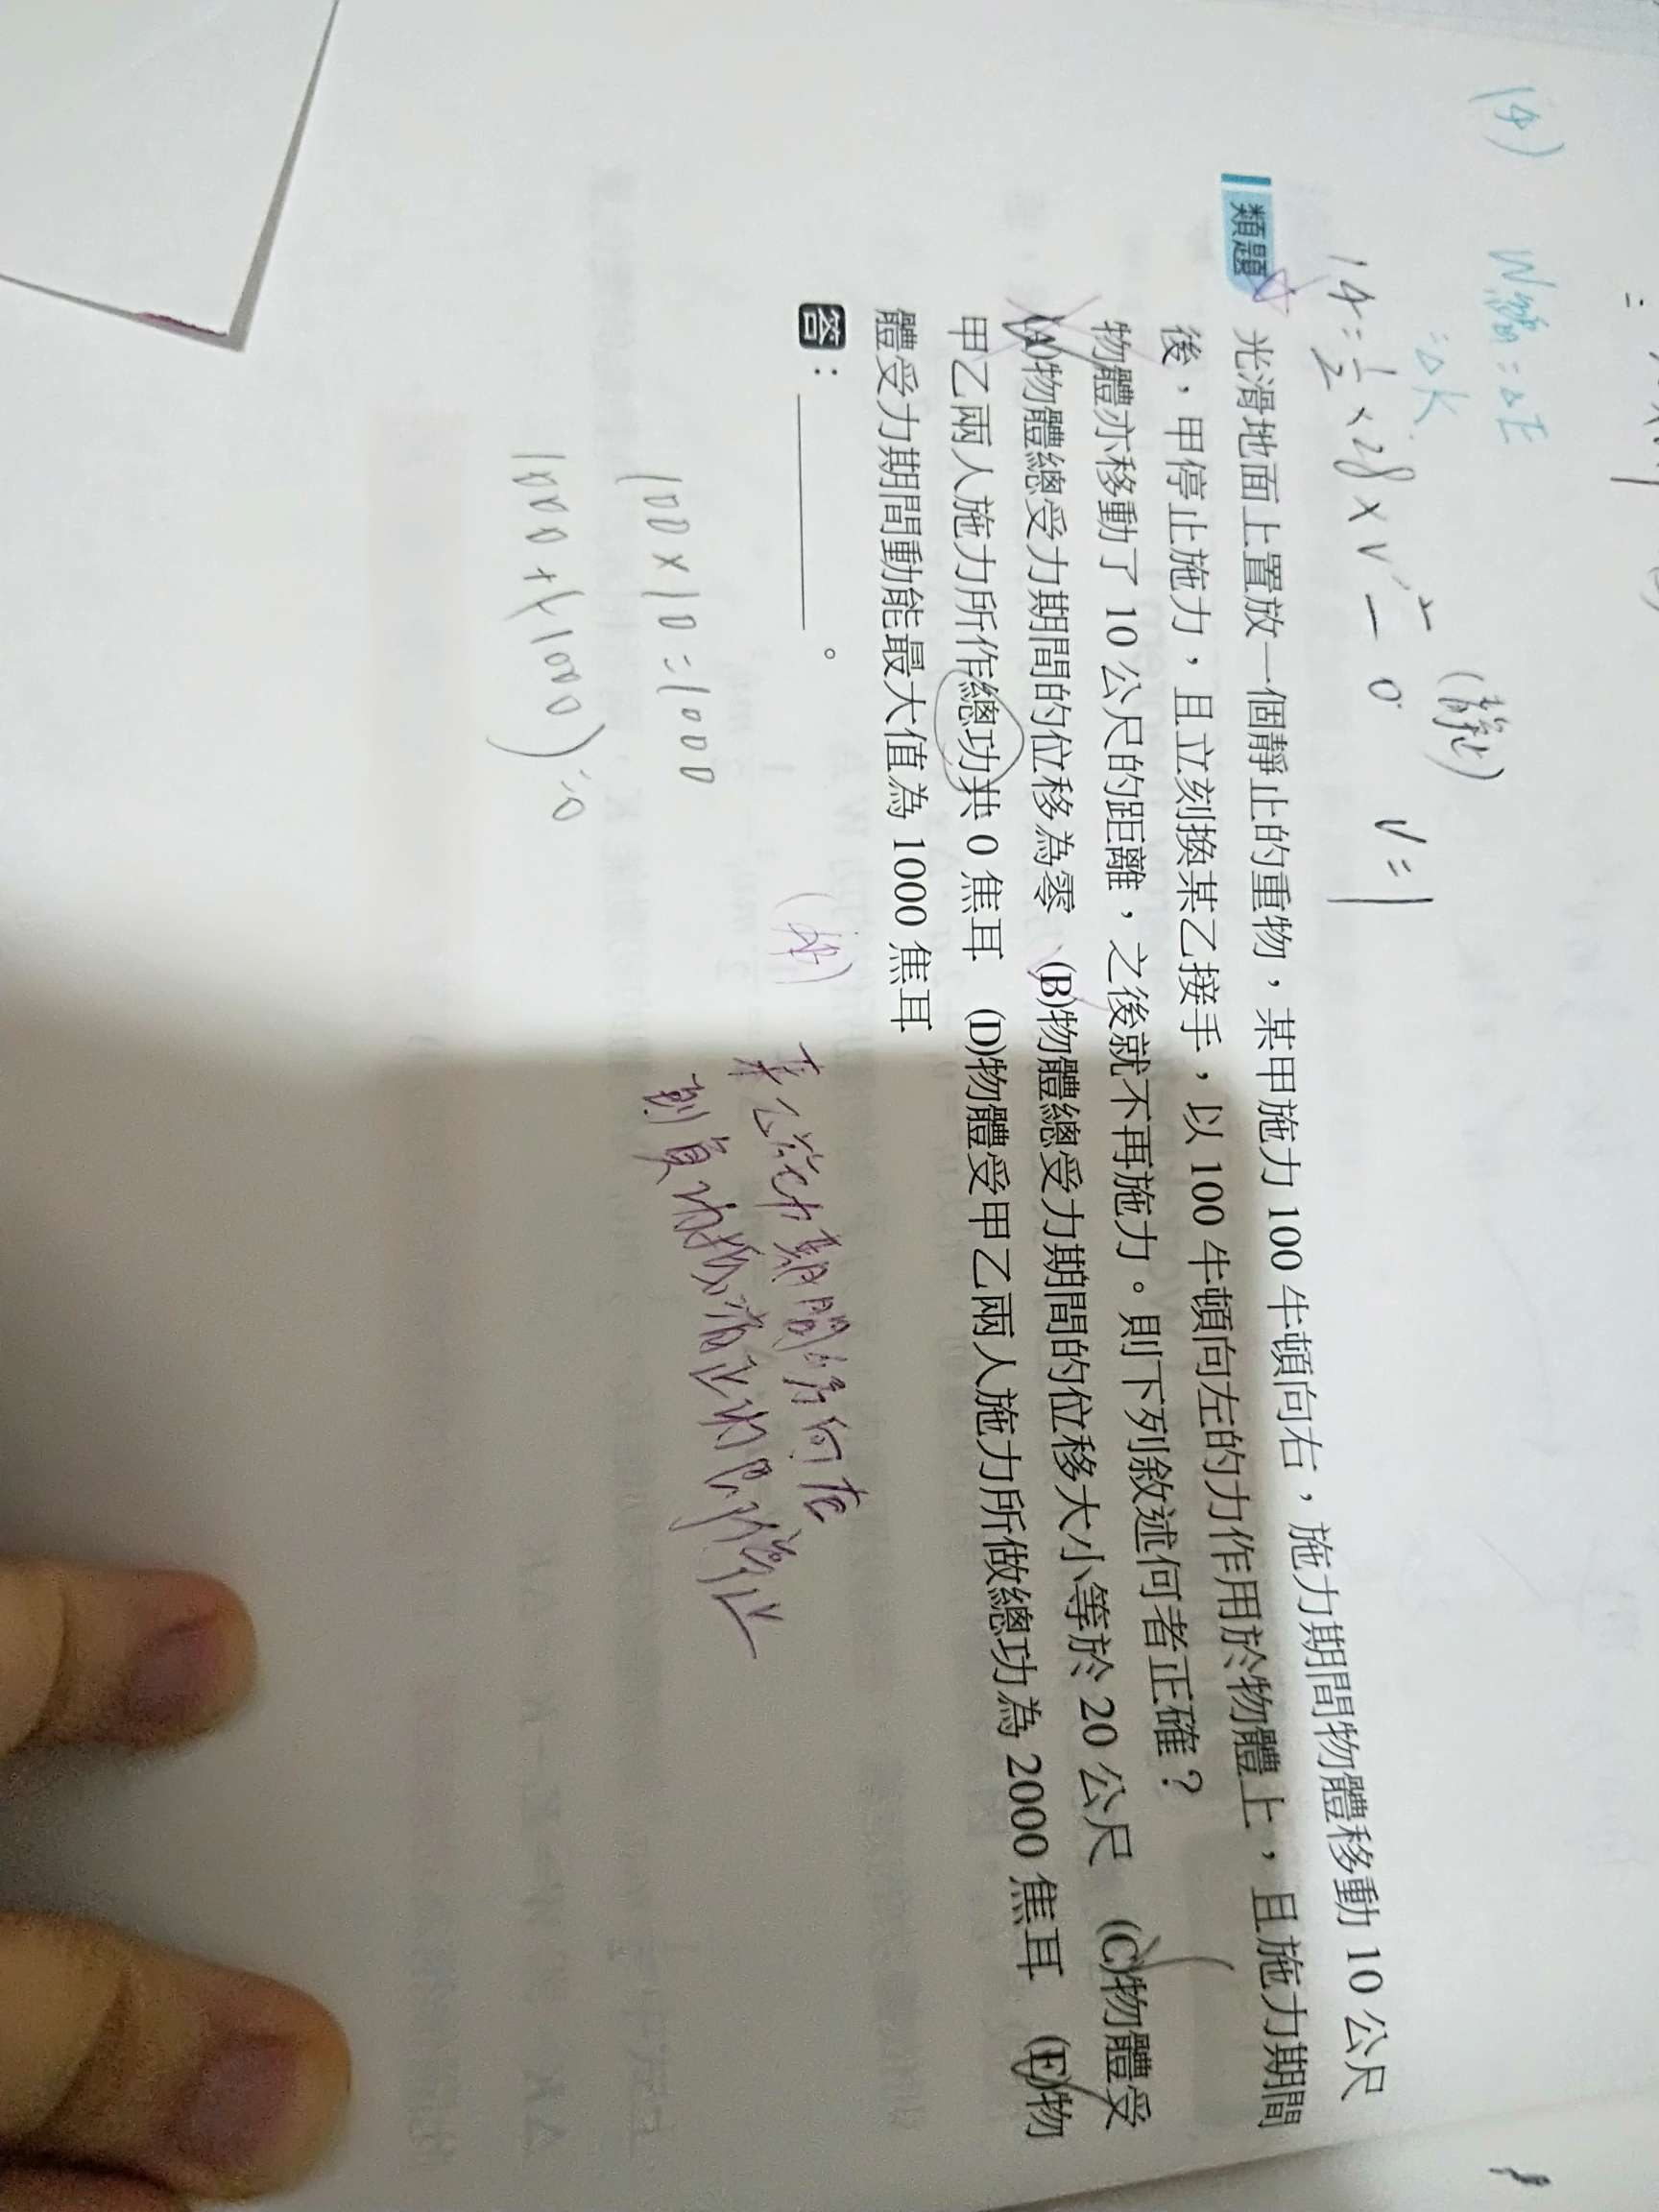 (4) W總=ΔE
=ΔK
14=1/2×28×v²-0 v=1
(靜止)
類題
光滑地面上置放一個靜止的重物，某甲施力 100 牛頓向右，施力期間物體移動 10 公尺
後，甲停止施力，且立刻換某乙接手，以 100 牛頓向左的力作用於物體上，且施力期間
物體亦移動了 10 公尺的距離，之後就不再施力。則下列敘述何者正確？
(A)物體總受力期間的位移為零 (B)物體總受力期間的位移大小等於 20 公尺 (C)物體受
甲乙兩人施力所作總功共 0 焦耳 (D)物體受甲乙兩人施力所做總功為 2000 焦耳 (E)物
體受力期間動能最大值為 1000 焦耳
答：。
100×10=1000
1000+(-1000)=0
某乙施力期間仍向右
則負功抵消正功即停止